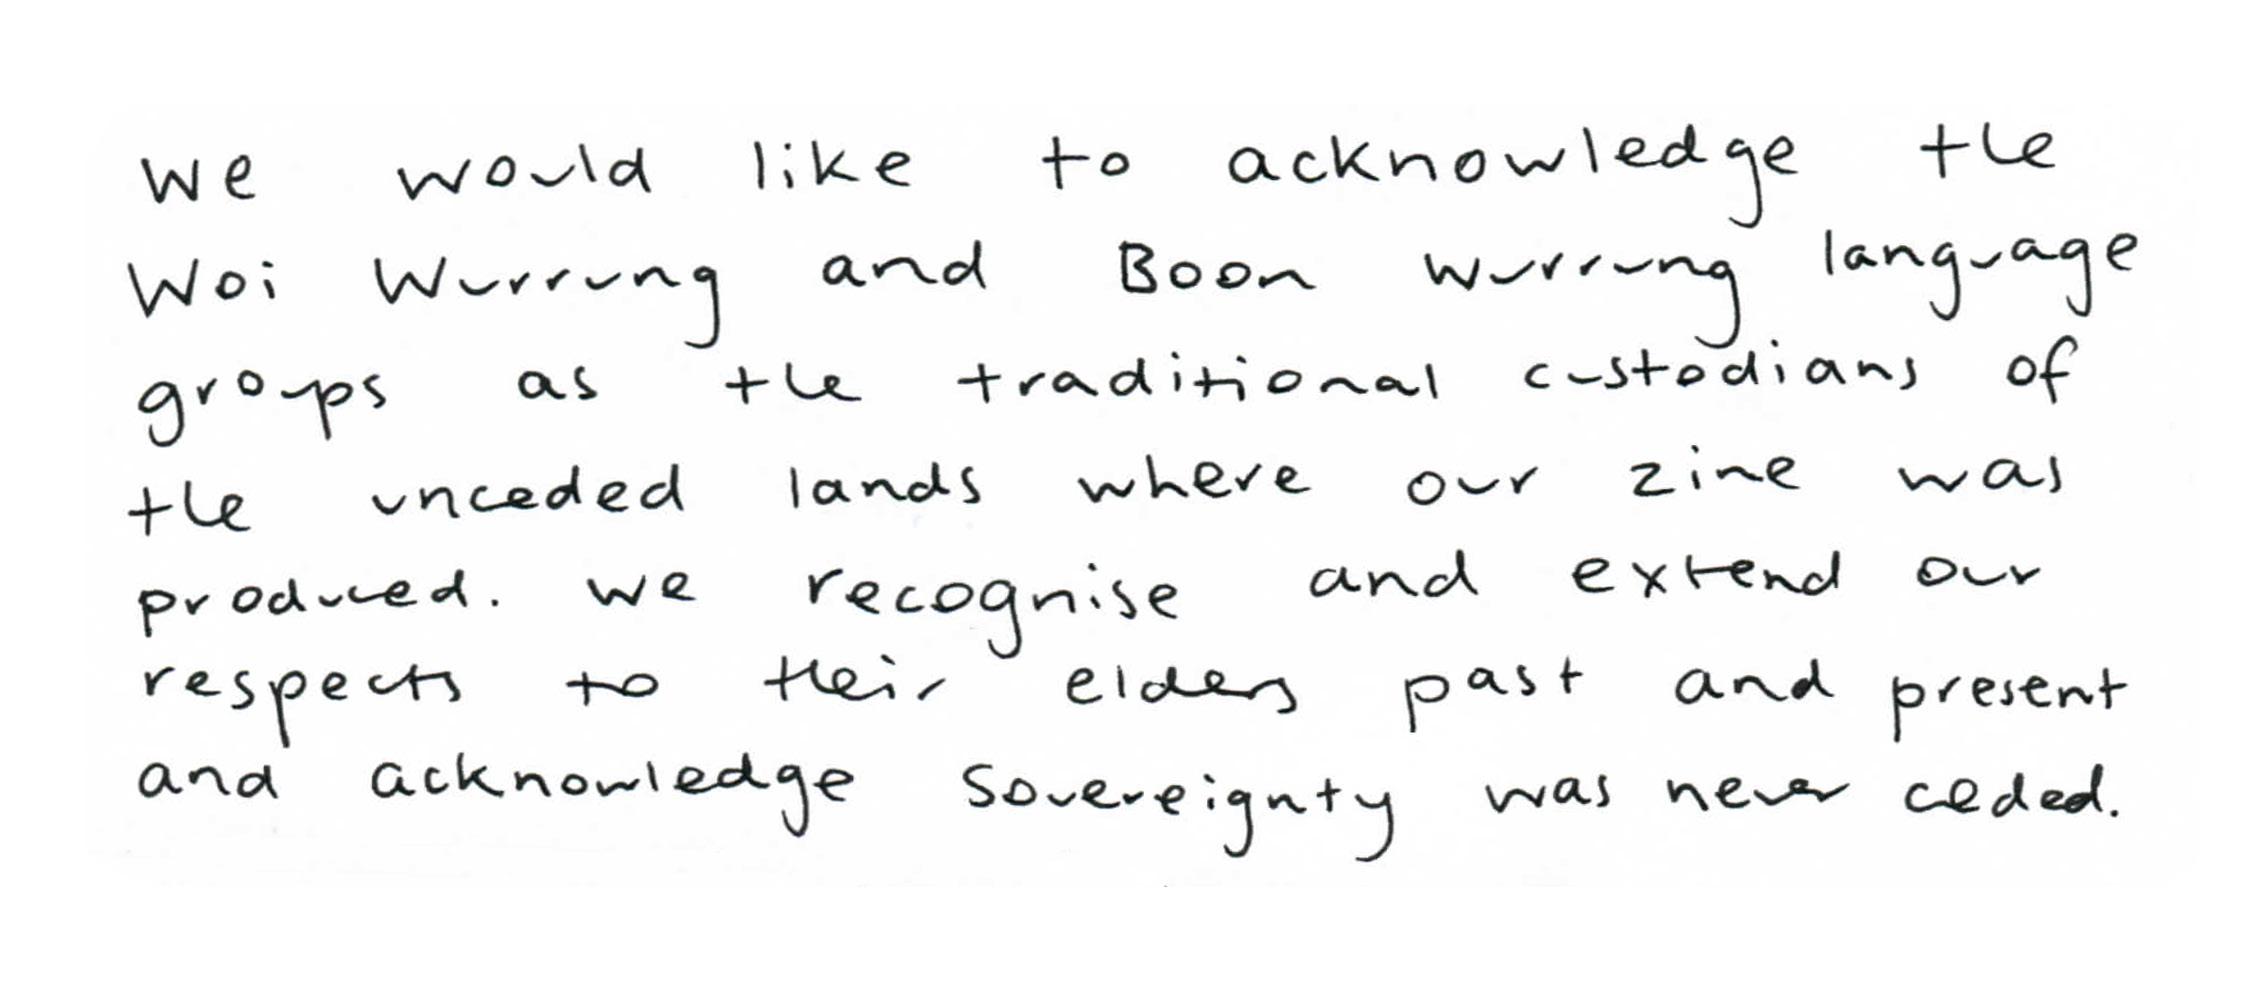 We would like to acknowledge the
Woi Wurrung and Boon Wurrung language
groups as the traditional custodians of
the unceded lands where our zine was
produced. We recognise and extend our
respects to their elders past and present
and acknowledge Sovereignty was never ceded.